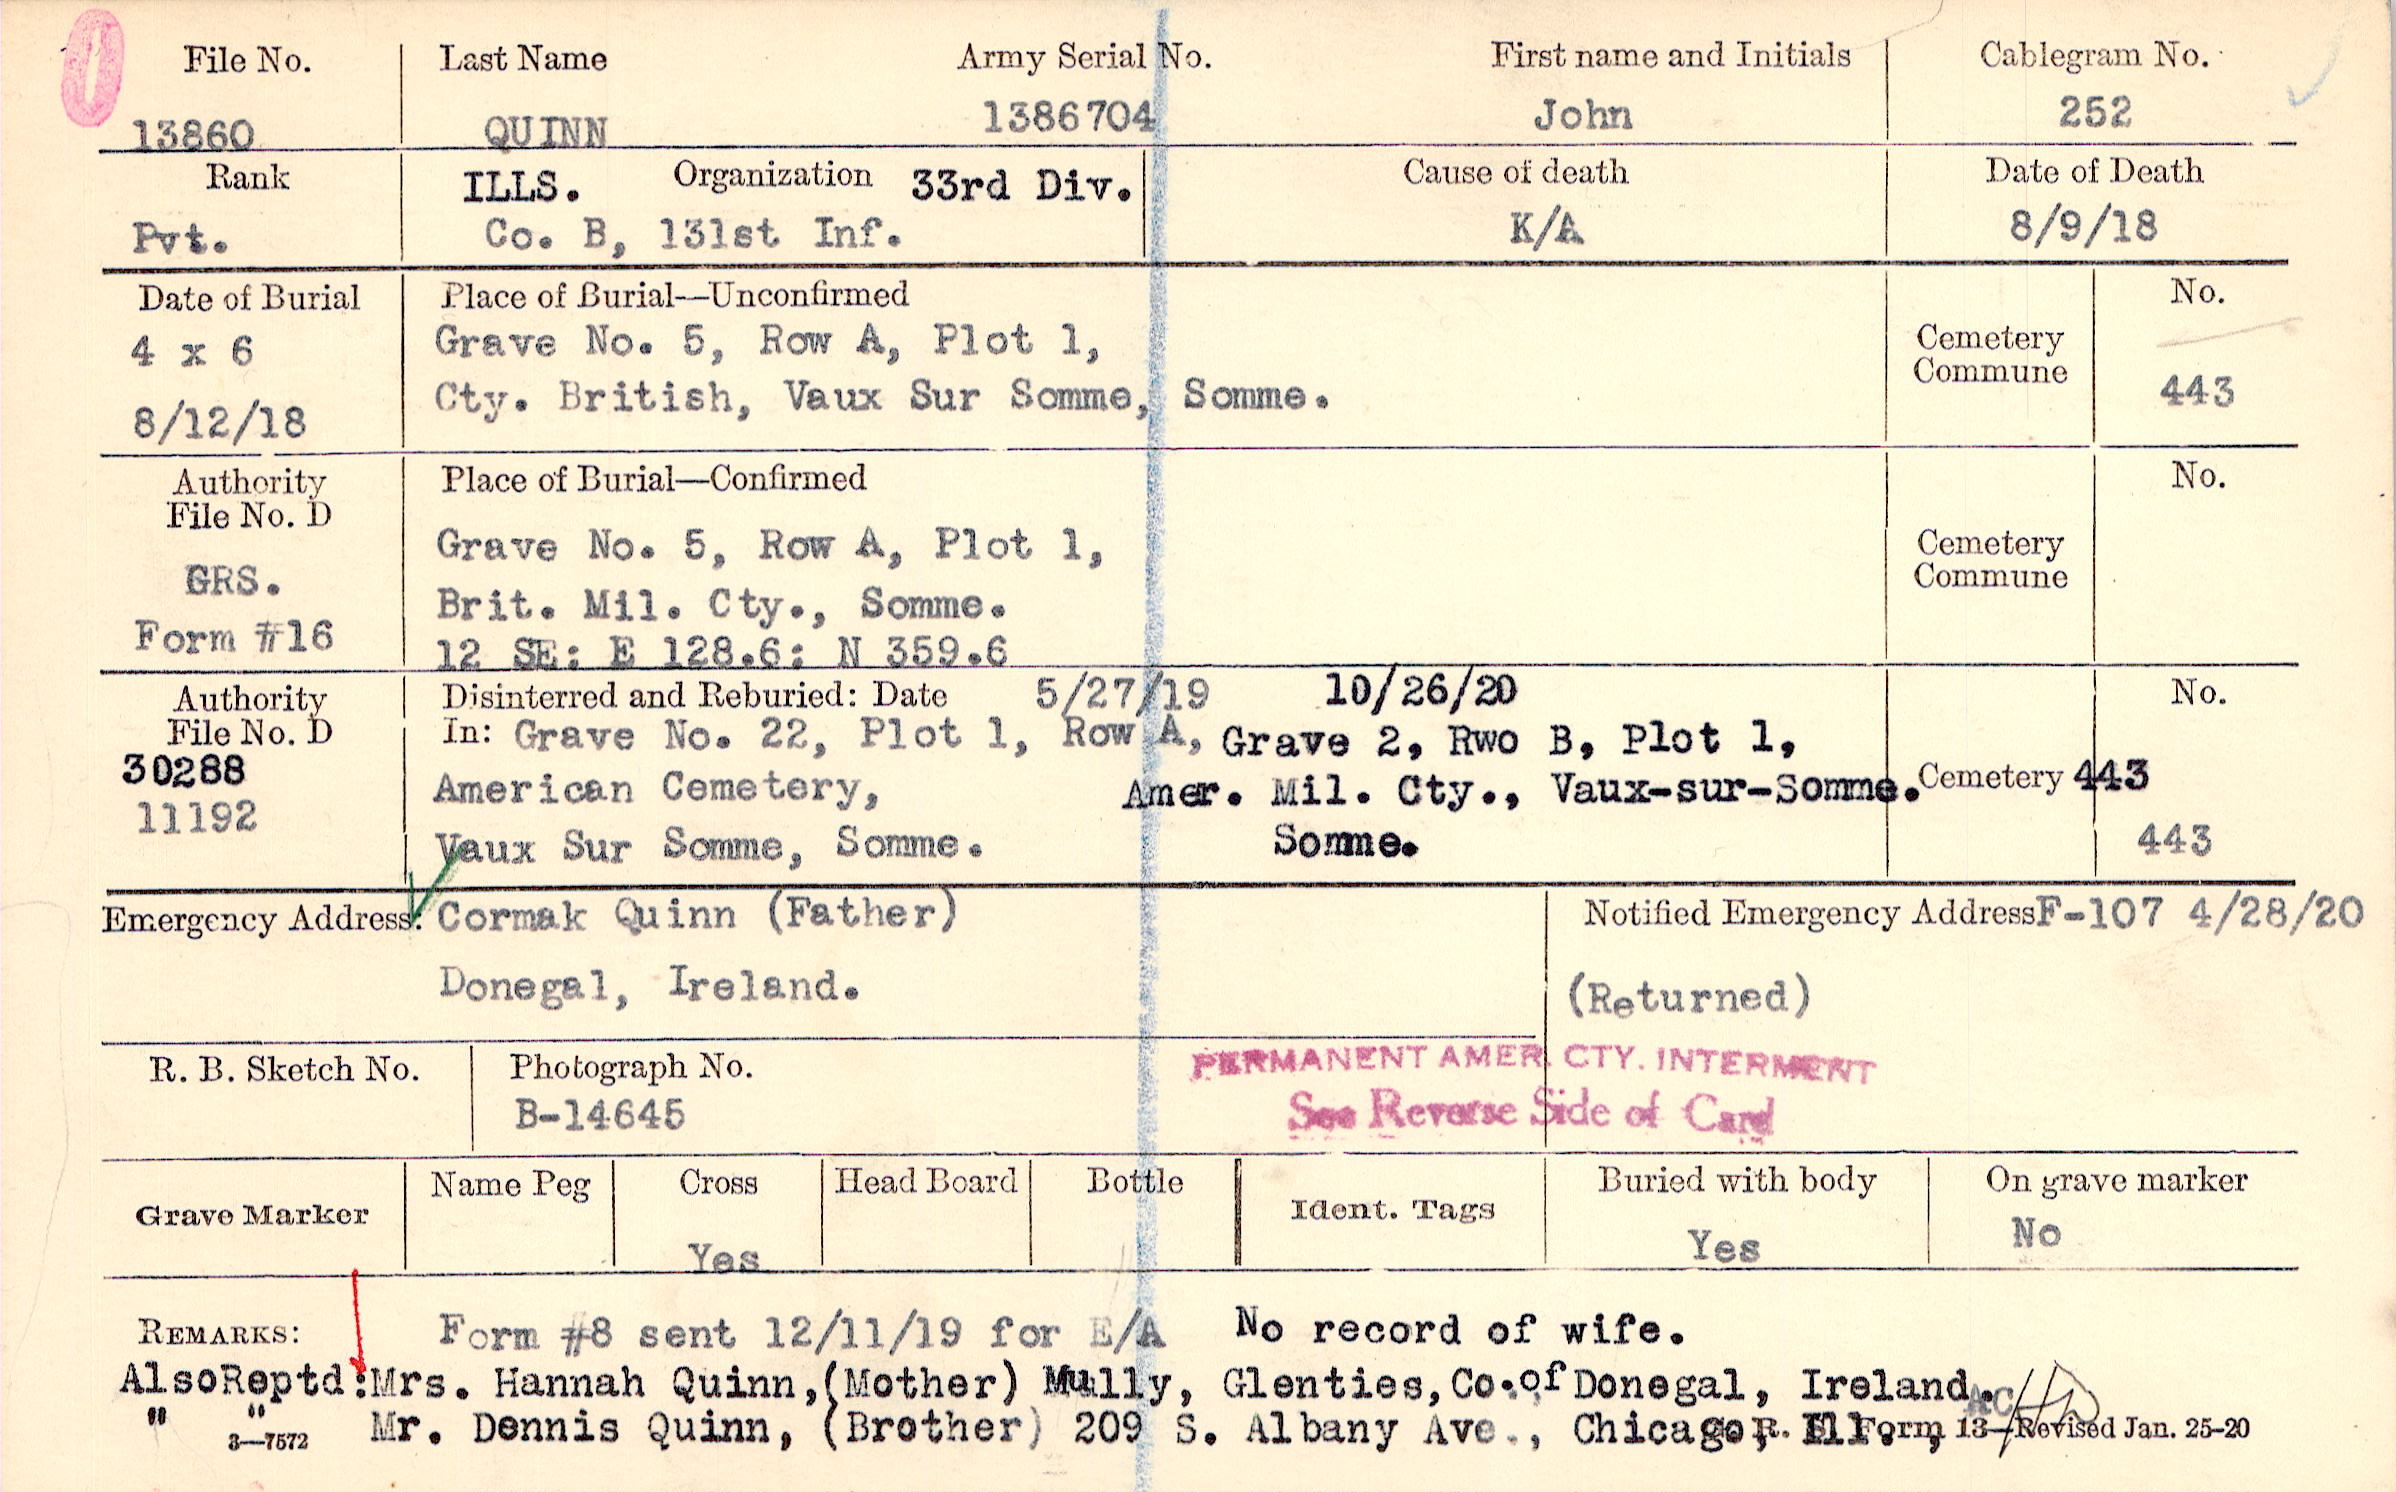 File No. Last Name Army Serial No. First name and Initials Cablegram No.
13860 QUINN 1386704 John 252
Rank ILLS. Organization 33rd Div. Cause of death Date of Death
Pvt. Co. B, 131st Inf. K/A 8/9/18
Date of Burial Place of Burial—Unconfirmed No.
4 x 6 Grave No. 5, Row A, Plot 1, Cemetery
Commune
8/12/18 Cty. British, Vaux Sur Somme, Somme. 443
Authority Place of Burial—Confirmed No.
File No. D
GRS. Grave No. 5, Row A, Plot 1, Cemetery
Commune
Form #16 Brit. Mil. Cty., Somme.
12 SE: E 128.6: N 359.6
Authority Disinterred and Reburied: Date 5/27/19 10/26/20 No.
File No. D In: Grave No. 22, Plot 1, Row A, Grave 2, Rwo B, Plot 1,
30288 American Cemetery, Amer. Mil. Cty., Vaux-sur-Somme. Cemetery 443
11192 Vaux Sur Somme, Somme. Somme. 443
Emergency Address: Cormak Quinn (Father) Notified Emergency Address F-107 4/28/20
Donegal, Ireland. (Returned)
R. B. Sketch No. Photograph No. PERMANENT AMER. CTY. INTERMENT
B-14645 See Reverse Side of Card
Grave Marker Name Peg Cross Head Board Bottle Ident. Tags Buried with body On grave marker
Yes Yes No
REMARKS: Form #8 sent 12/11/19 for E/A No record of wife.
AlsoReptd:Mrs. Hannah Quinn,(Mother) Mully, Glenties,Co.of Donegal, Ireland.
" " Mr. Dennis Quinn, (Brother) 209 S. Albany Ave., Chicago, Ill.,
3—7572 G. R. S. Form 13—Revised Jan. 25-20